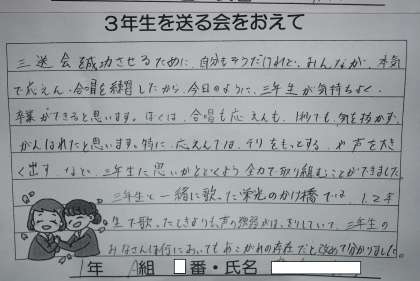 3年生を送る会をおえて
三送会を成功させるために、自分もそうだけれど、みんなが、本気
で応えん、合唱を練習したから、今日のように、三年生が気持ちよく、
卒業ができると思います。ぼくは、合唱も応えんも、1秒も、気を抜かず、
がんばれたと思います。特に、応えんでは、テリをもっとする、や声を大き
く出す、など、三年生に思いがとどくよう全力で取り組むことができました。
三年生と一緒に歌った栄光のかけ橋では、1、2年
生で歌ったときよりも、声の強弱がはっきりしていて、三年生の
みなさんは何においてもあこがれの存在だと改めて分かりました。
1年 A組 番・氏名